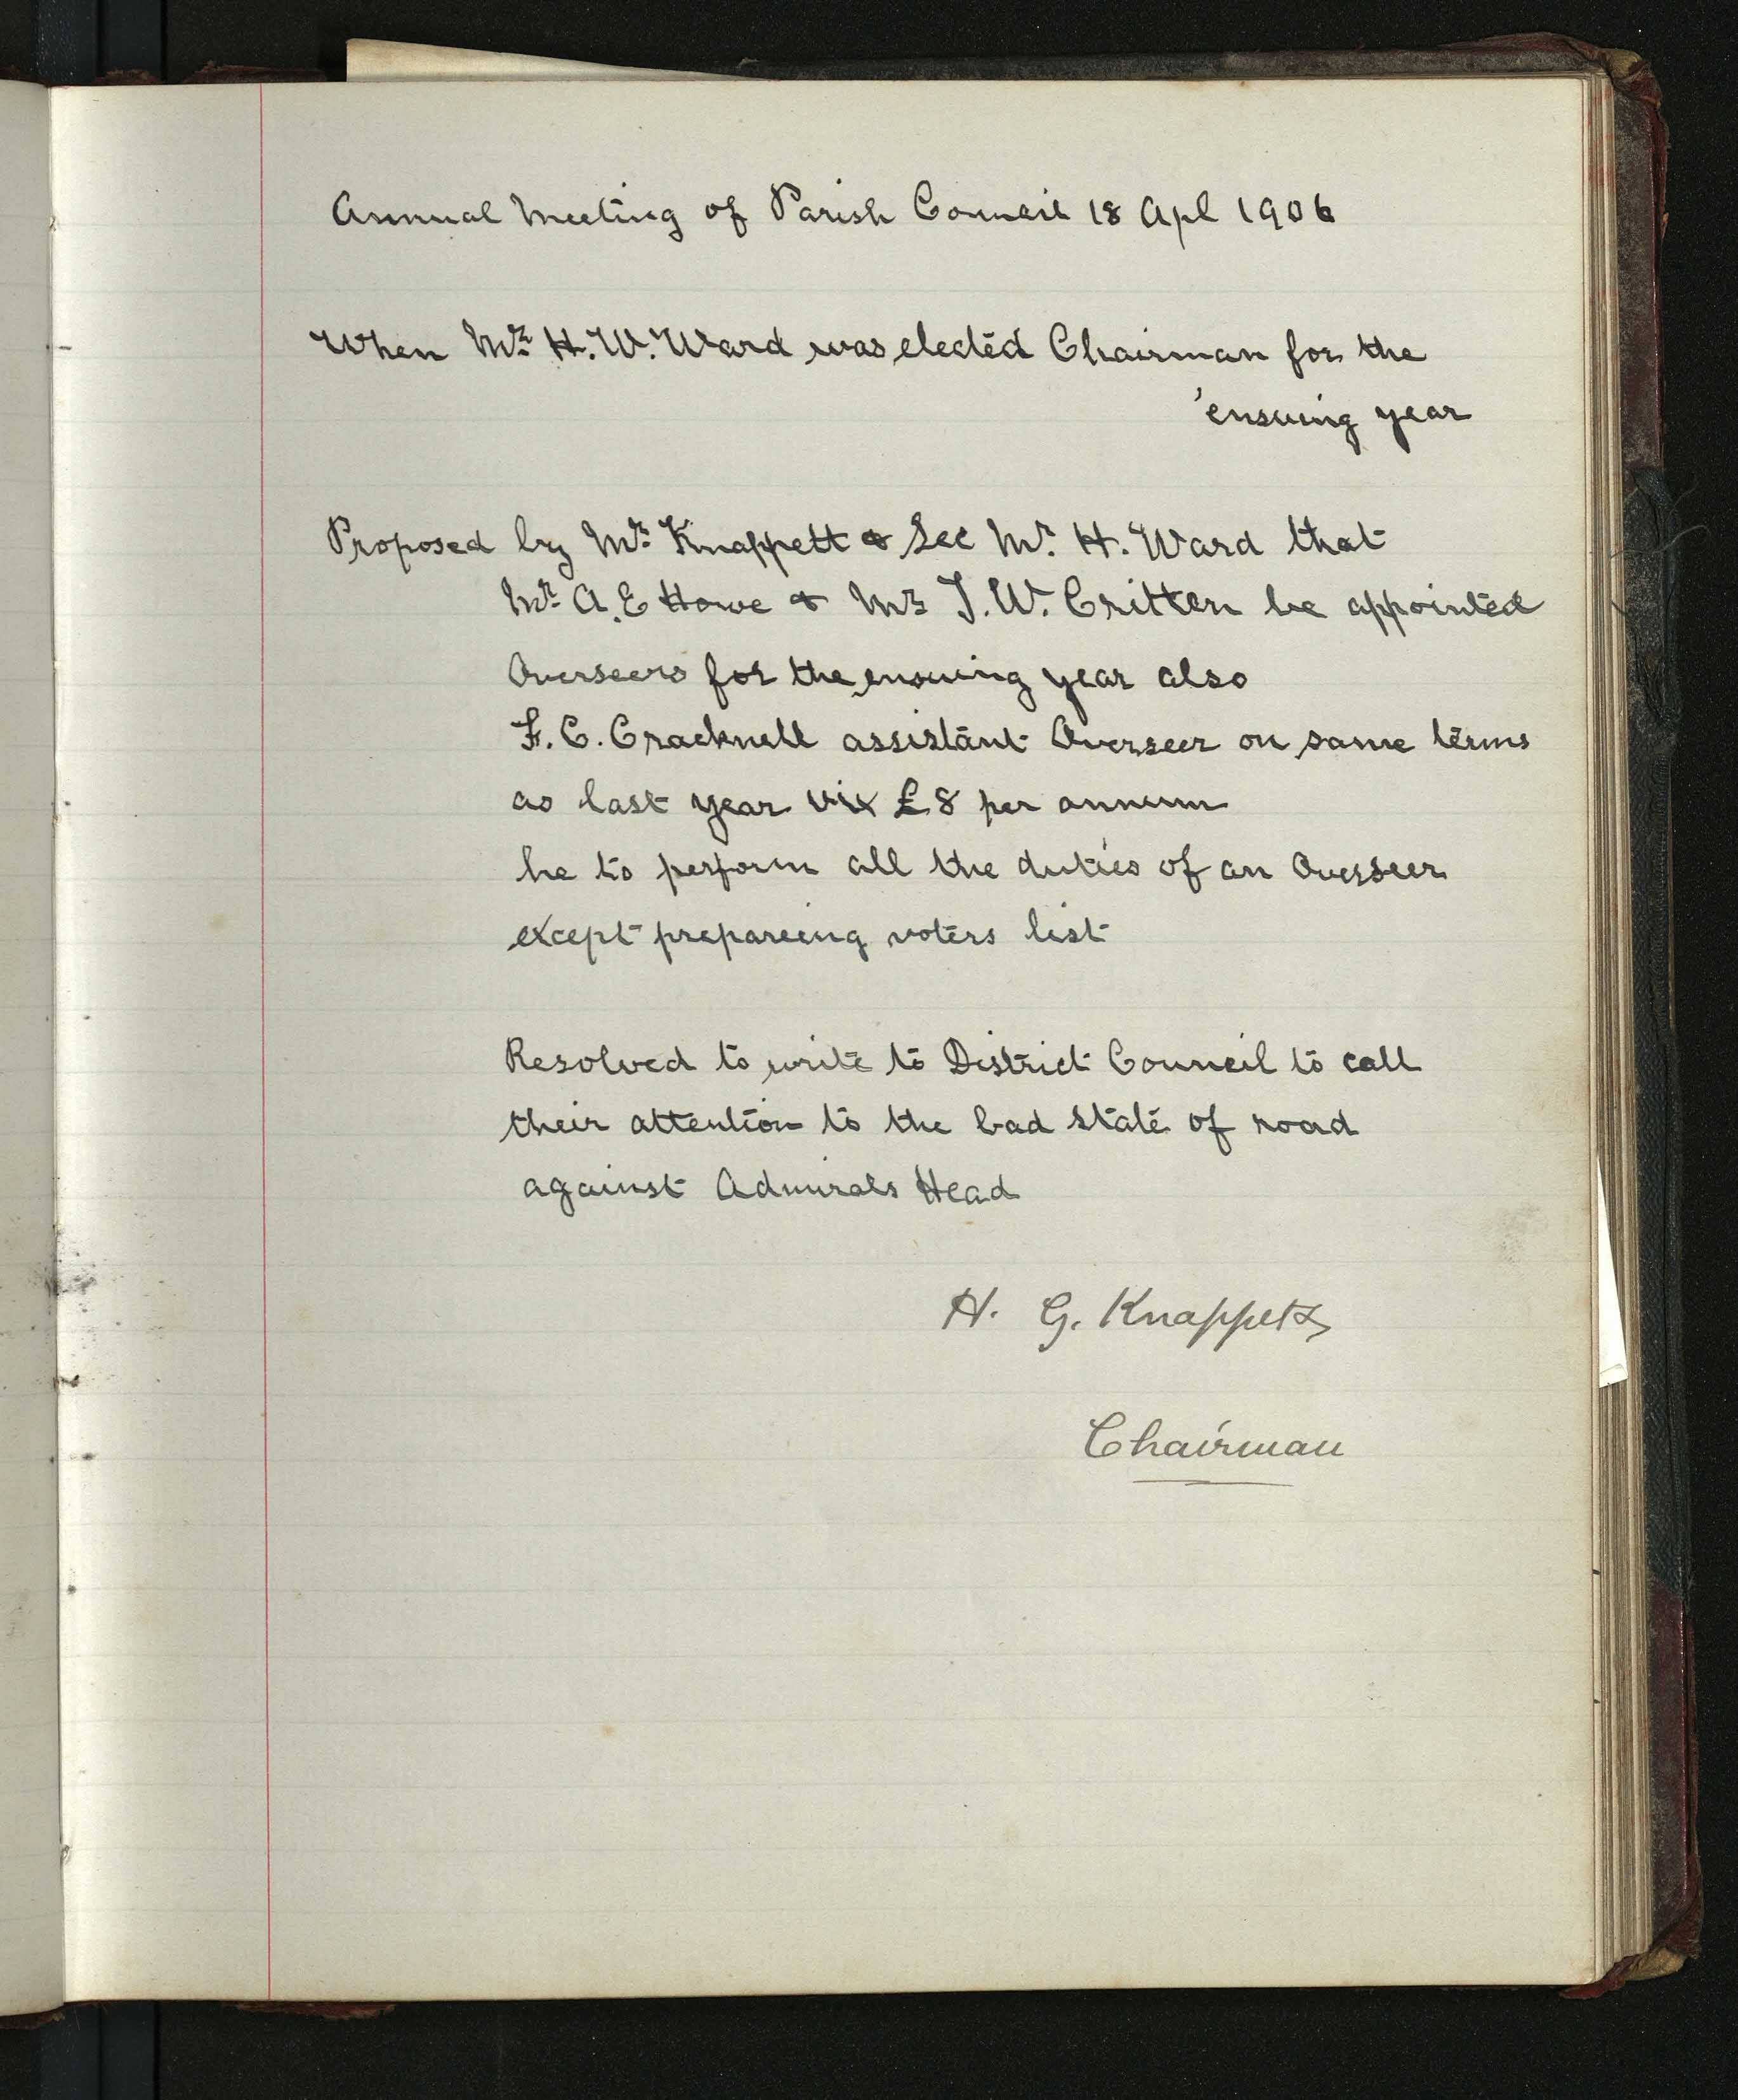 Annual Meeting of Parish Council 18 Apl 1906
When Mr H. W. Ward was elected Chairman for the
ensuing year
Proposed by Mr Knappett & Sec Mr H. Ward that
Mr A. E Howe & Mr J. W. Critten be appointed
Overseers for the ensuing year also
F. C. Cracknell assistant Overseer on same terms
as last year viz £8 per annum
he to perform all the duties of an Overseer
except prepareing voters list
Resolved to write to District Council to call
their attention to the bad state of road
against Admirals Head
H. G. Knappett
Chairman